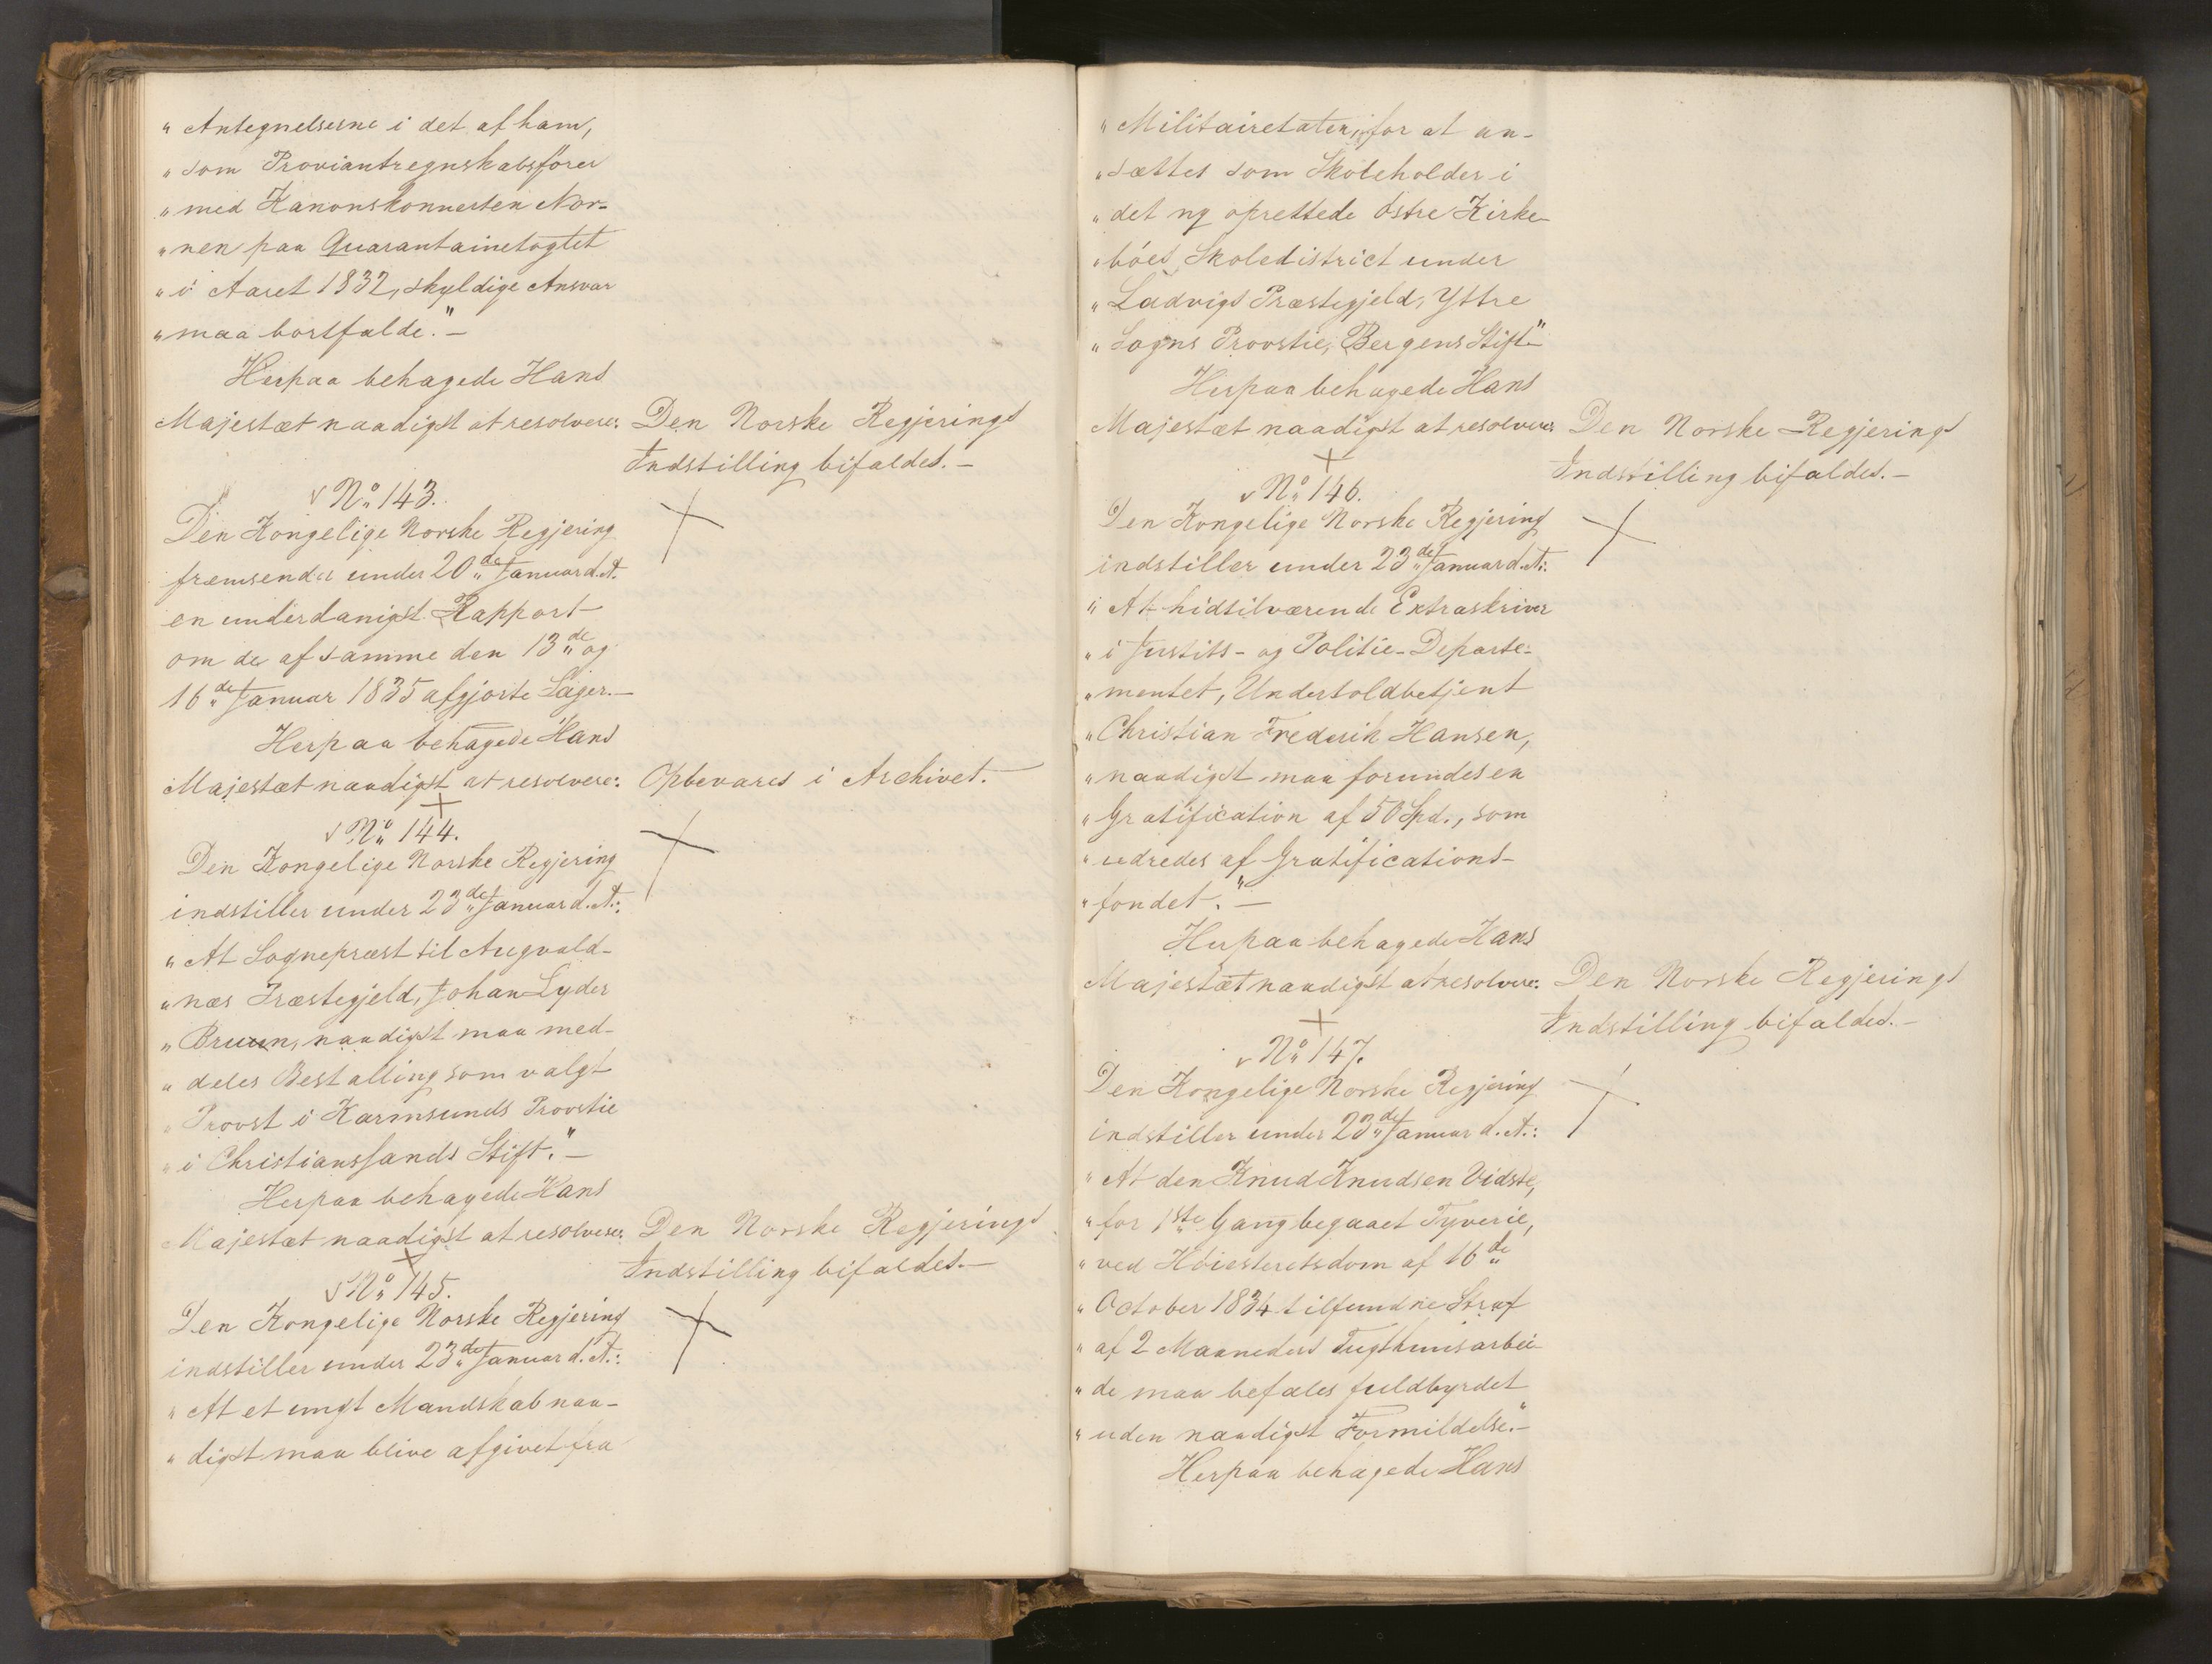 „Antegnelserne i det af ham,
„som Proviantregnskabsfører
„med Kanonskonnerten Nor-
„nen paa Quarantainetogtet
„i Aaret 1832, skyldige Ansvar
„maa bortfalde." -
Herpaa behagede Hans
Majestæt naadigst at resolvere: Den Norske Regjerings
Indstilling bifaldes. -
√ No 143.
Den Kongelige Norske Regjering
fremsender under 20de Januar d. A.
en underdanigst Rapport
om de af samme den 13de og
16de Januar 1835 afgjorte Sager. -
Herpaa behagede Hans
Majestæt naadigst at resolvere: Opbevares i Archivet. -
√ No 144.
Den Kongelige Norske Regjering
indstiller under 23de Januar d. A.:
„At Sognepræst til Augvald-
„næs Præstegjeld, Johan Lyder
„Bruun, naadigst maa med-
„deles Bestalling som valgt
„Provst i Karmsunds Provstie
„i Christianssands Stift." -
Herpaa behagede Hans
Majestæt naadigst at resolvere: Den Norske Regjerings
Indstilling bifaldes. -
√ No 145.
Den Kongelige Norske Regjering
indstiller under 23de Januar d. A.:
„At et ungt Mandskab naa-
„digst maa blive afgivet fra
„Militairetaten, for at an-
„sættes som Skoleholder i
„det ny oprettede østre Kirke-
„bøes Skoledistrict under
„Ladvigs Præstegjeld, Yttre
„Sogns Provstie, Bergens Stift" -
Herpaa behagede Hans
Majestæt naadigst at resolvere: Den Norske Regjerings
Indstilling bifaldes. -
√ No 146.
Den Kongelige Norske Regjering
indstiller under 23de Januar d. A.:
„At hidtilværende Extraskriver
„i Justits- og Politie-Departe-
„mentet, Undertoldbetjent
„Christian Frederik Hansen,
„naadigst maa forundes en
„Gratification af 50 Spd., som
„udredes af Gratifications-
„fondet." -
Herpaa behagede Hans
Majestæt naadigst at resolvere: Den Norske Regjerings
Indstilling bifaldes. -
√ No 147.
Den Kongelige Norske Regjering
indstiller under 23de Januar d. A.:
„At den Knud Knudsen Vidste,
„for 1ste Gang begaaet Tyverie,
„ved Høiesteretsdom af 16de
„October 1834 tilfundne Straf
„af 2 Maaneders Tugthuusarbei-
„de maa befales fuldbyrdet
„uden naadigst Formildelse." -
Herpaa behagede Hans